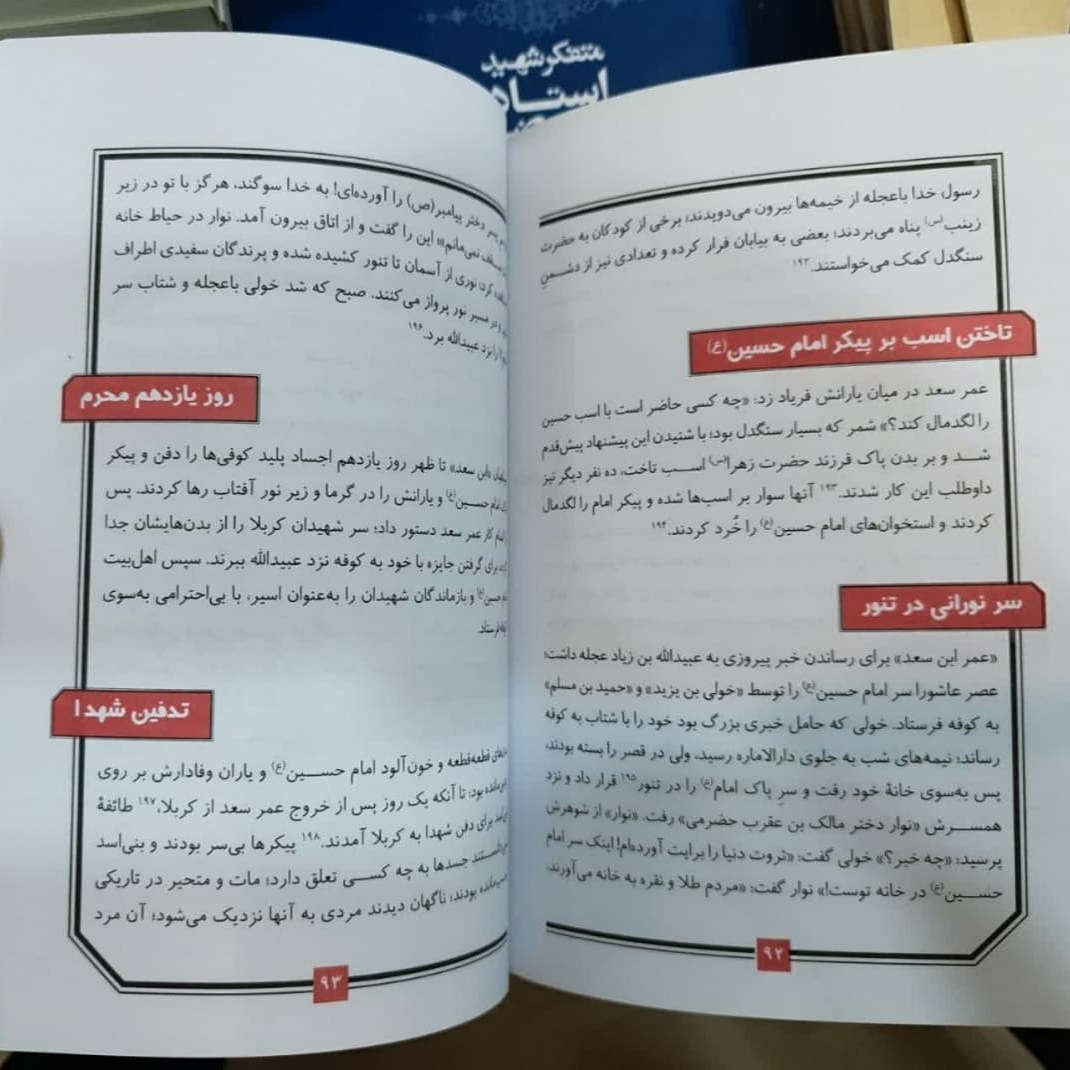 متفکر شهید
استاد
رسول خدا باعجله از خیمه‌ها بیرون می‌دویدند؛ برخی از کودکان به حضرت
زینب(س) پناه می‌بردند؛ بعضی به بیابان فرار کرده و تعدادی نیز از دشمنِ
سنگدل کمک می‌خواستند.۱۹۲
تاختن اسب بر پیکر امام حسین(ع)
عمر سعد در میان یارانش فریاد زد: «چه کسی حاضر است با اسب حسین
را لگدمال کند؟» شمر که بسیار سنگدل بود؛ با شنیدن این پیشنهاد پیش‌قدم
شد و بر بدن پاک فرزند حضرت زهرا(س) اسب تاخت، ده نفر دیگر نیز
داوطلب این کار شدند.۱۹۳ آنها سوار بر اسب‌ها شده و پیکر امام را لگدمال
کردند و استخوان‌های امام حسین(ع) را خُرد کردند.۱۹۴
سر نورانی در تنور
«عمر ابن سعد» برای رساندن خبر پیروزی به عبیدالله بن زیاد عجله داشت؛
عصر عاشورا سر امام حسین(ع) را توسط «خولی بن یزید» و «حمید بن مسلم»
به کوفه فرستاد. خولی که حامل خبری بزرگ بود خود را با شتاب به کوفه
رساند؛ نیمه‌های شب به جلوی دارالاماره رسید، ولی در قصر را بسته بودند،
پس به‌سوی خانهٔ خود رفت و سرِ پاک امام(ع) را در تنور۱۹۵ قرار داد و نزد
همسرش «نوار دختر مالک بن عقرب حضرمی» رفت. «نوار» از شوهرش
پرسید: «چه خبر؟» خولی گفت: «ثروت دنیا را برایت آورده‌ام! اینک سر امام
حسین(ع) در خانه توست!» نوار گفت: «مردم طلا و نقره به خانه می‌آورند،
۹۲
دختر پیامبر(ص) را آورده‌ای! به خدا سوگند، هرگز با تو در زیر
سقف نمی‌مانم» این را گفت و از اتاق بیرون آمد. نوار در حیاط خانه
کرد؛ نوری از آسمان تا تنور کشیده شده و پرندگان سفیدی اطراف
در مسیر نور پرواز می‌کنند. صبح که شد خولی باعجله و شتاب سر
را نزد عبیدالله برد.۱۹۶
روز یازدهم محرم
«ابن سعد» تا ظهر روز یازدهم اجساد پلید کوفی‌ها را دفن و پیکر
امام حسین(ع) و یارانش را در گرما و زیر نور آفتاب رها کردند. پس
کار عمر سعد دستور داد؛ سر شهیدان کربلا را از بدن‌هایشان جدا
برای گرفتن جایزه با خود به کوفه نزد عبیدالله ببرند. سپس اهل‌بیت
حسین(ع) و بازماندگان شهیدان را به‌عنوان اسیر، با بی‌احترامی به‌سوی
فرستاد.
تدفین شهدا
قطعه‌قطعه و خون‌آلود امام حسین(ع) و یاران وفادارش بر روی
مانده بود؛ تا آنکه یک روز پس از خروج عمر سعد از کربلا،۱۹۷ طائفهٔ
برای دفن شهدا به کربلا آمدند.۱۹۸ پیکرها بی‌سر بودند و بنی‌اسد
جسدها به چه کسی تعلق دارد؛ مات و متحیر در تاریکی
بودند؛ ناگهان دیدند مردی به آنها نزدیک می‌شود؛ آن مرد
۹۳